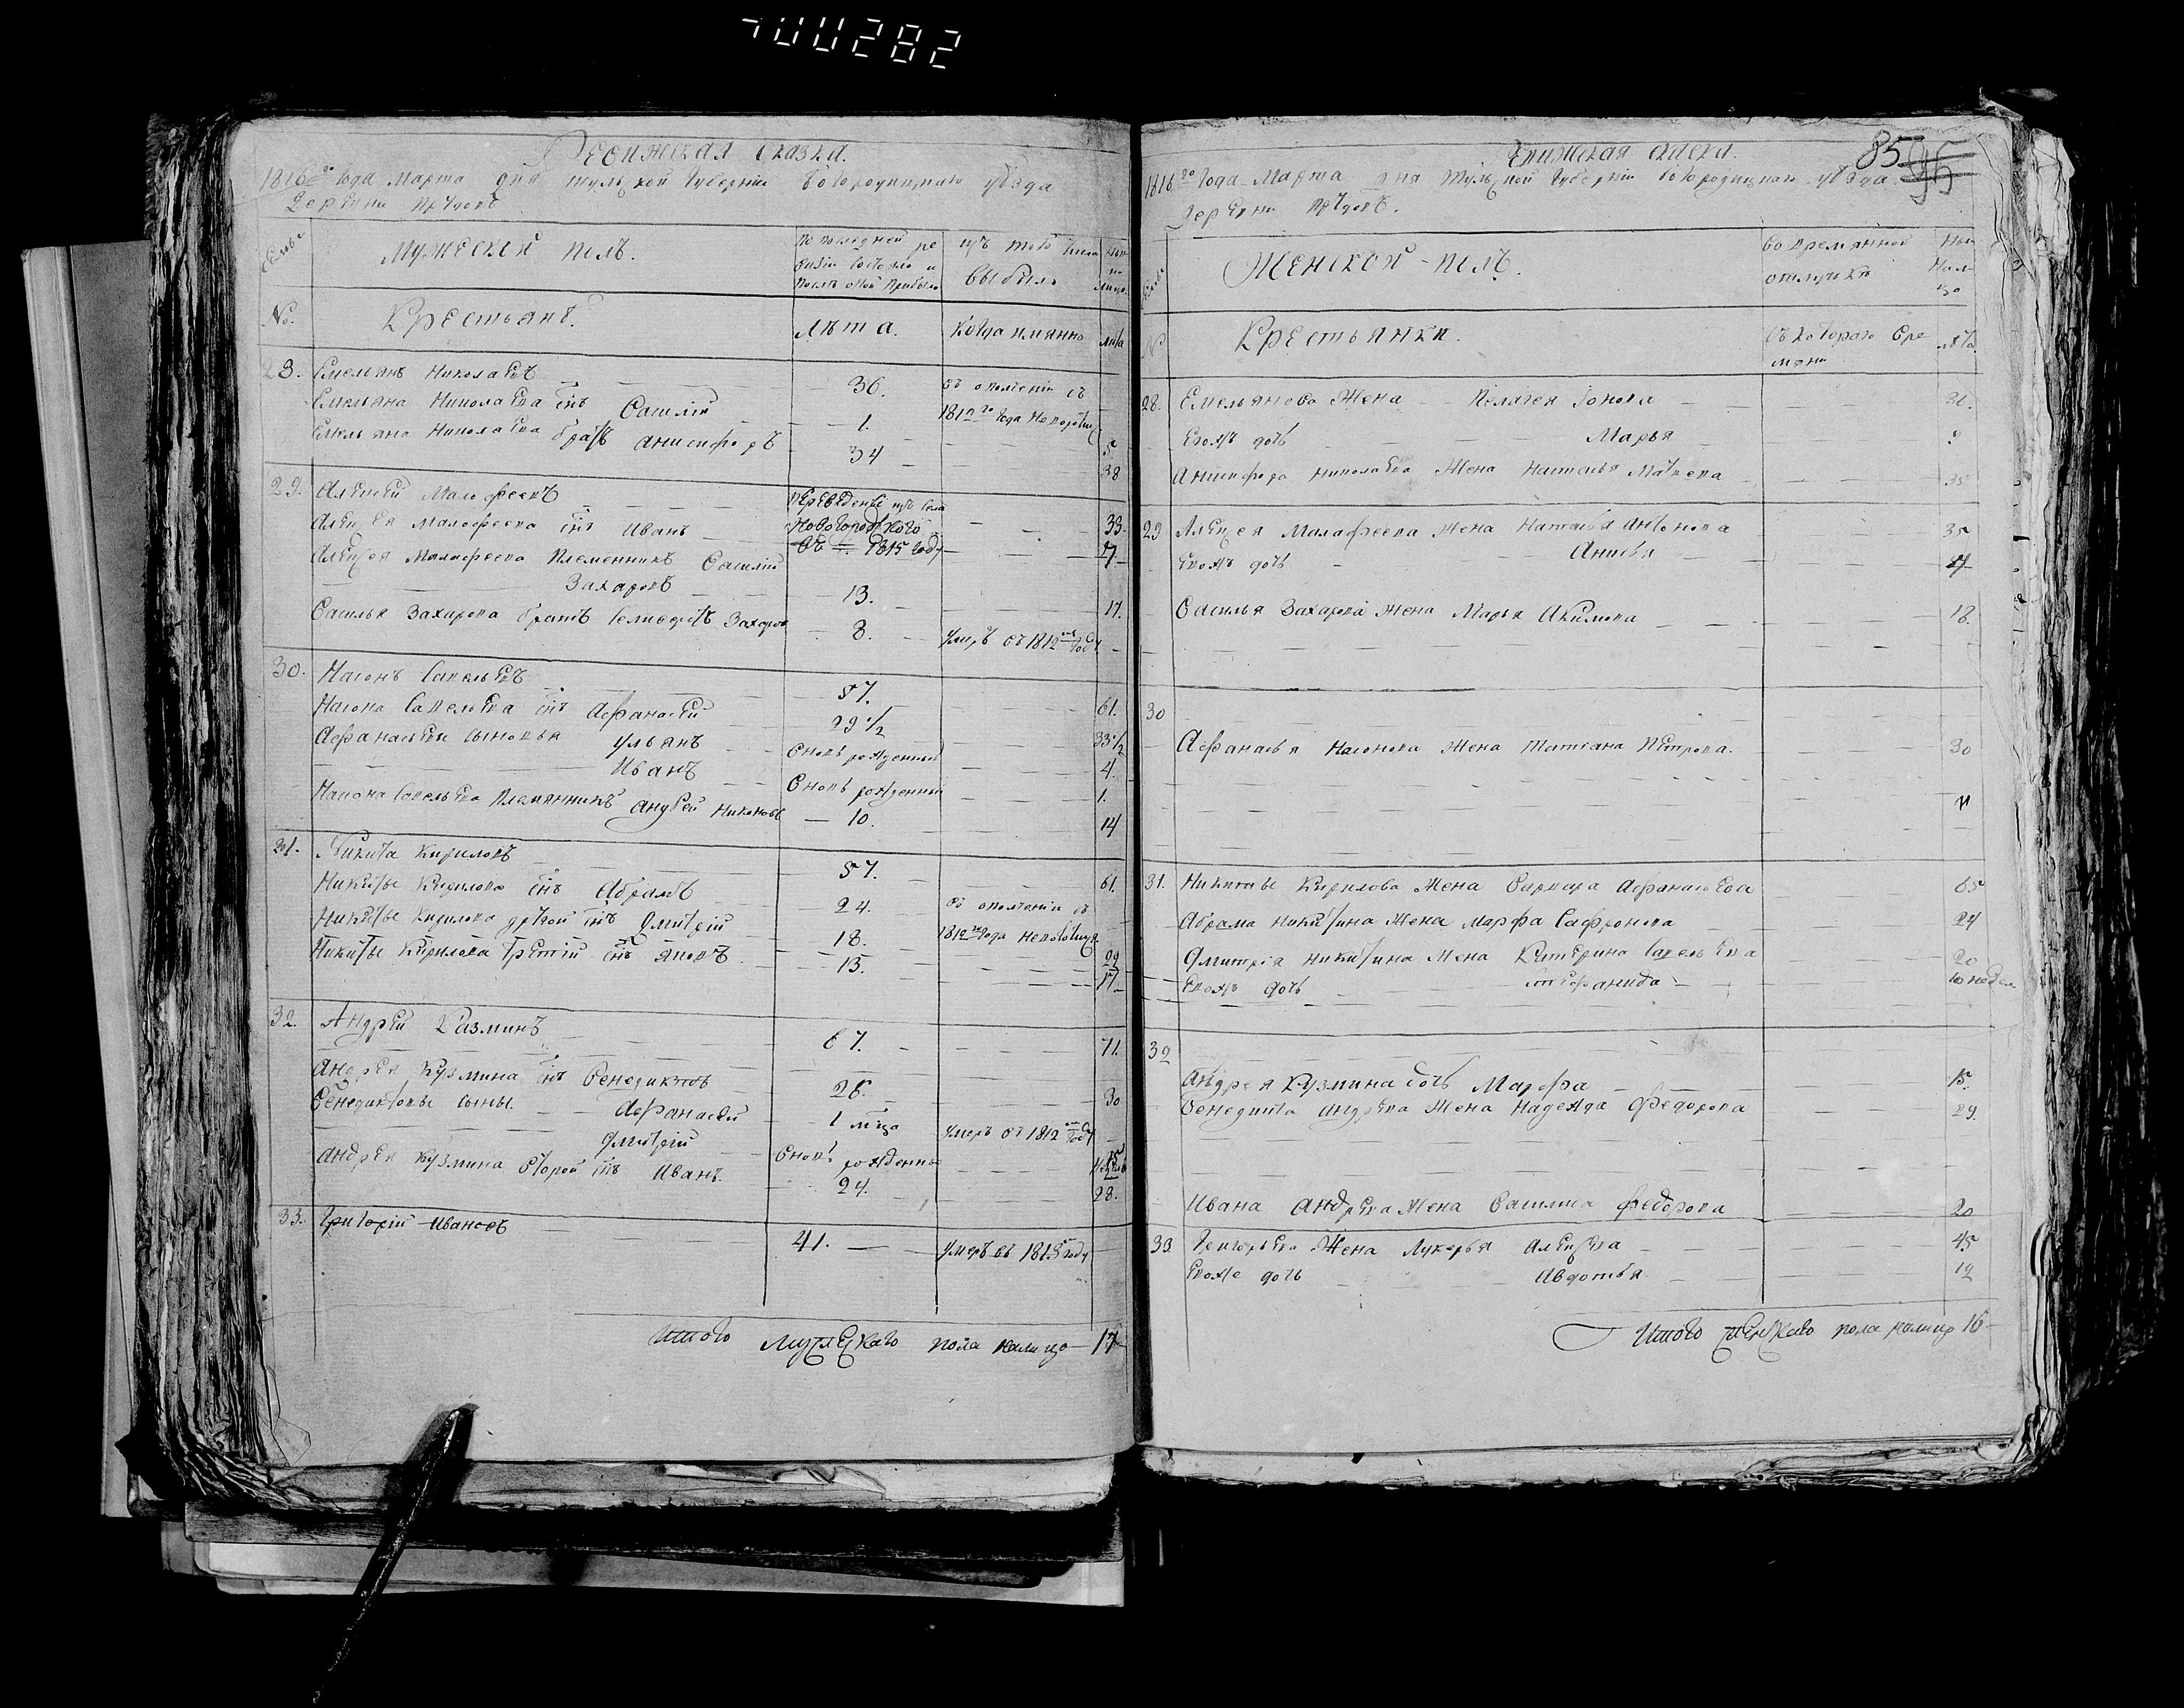 700282
Ревижская сказка.
1816го года Марта дня тульской губернии богородицкаго уѣзда
Деревни
Семьи
Мужеской полъ.
По последней ре
визіи состояло и
послѣ оной прибыло
изъ того числа
выбыло
лицо
№.
Крестьянѣ.
лѣта.
когда имянно
лѣта
28. Емельянъ Николаевъ 36. въ ополченіи съ
Емельяна Николаева сынъ Василій 1. 1812го года 5
Емельяна Николаева братъ анисифоръ 34 38
29. Алексей Малофеевъ переведенъ изъ села 33.
Алексея Малофеева сынъ Иванъ 7.
въ 1815 году
Алексея Малафеева племенникъ Василій
Захаровъ 13. 17.
Василья Захарова братъ Захаровъ 8. умеръ въ 1812 году
30. Насонъ Савельевъ 57. 61.
Насона Савельева сынъ Афанасей 29 1/2 33 1/2
Афанасьевы сыновья Ульянъ вновь рожденный 4.
Иванъ вновь рожденный 1.
Насона Савельева племянникъ Андрей Никоновъ 10. 14
31. Никита Кириловъ 57. 61.
Никиты Кирилова сынъ Абрамъ 24. въ ополченіи съ
Никиты Кирилова другой сынъ Дмитрій 18. 1812го года 22
Никиты Кирилова третій сынъ яковъ 13. 17
32. Андрей Казминъ 67. 71.
Андрея Кузмина сынъ Венедиктъ 26. 30
Венедиктовы сыны. Афанасей 1 мца умеръ въ 1812 году
Дмитрій вновь рожденный
Андрея Кузмина второй сынъ Иванъ. 24. 28.
33. Григорій Ивановъ 41. умеръ въ 1813 году
Итого мужескаго пола налицо 17
85
95
1816го года Марта дня тульской губерніи богородицкаго уѣзда
деревни
Женской полъ.
во времянной
отлучкѣ
На
Лицо
№
Крестьянки.
съ котораго вре
мяни
лѣта
28. Емельянова жена Пелагея
евожъ дочь Марья 9
Анисифора николаева жена Настасья Матвева 35
29 Алексея Малафеева жена Наталья Антонова 35
евожъ дочь Анисья
Василья Захарова жена Марья Акимова 18.
30
Афанасья Насонова жена татіана Петрова. 30
31. Никиты Кирилова жена Варвара Афанасьева 65
Абрама Никитина жена Марфа Сафронова 24
Дмитрія Никитина жена Катерина Савельева 20
евожъ дочь Степанида 10 недель
32
Андрея Кузмина дочь Марфа 15.
Венедикта Андрева жена Надежда Федорова 29
Ивана Андрева жена Василиса Федорова 20
33. Григорьева жена Лукерья Алексева 45
евоже дочь Авдотья 12
Итого женскаго пола налицо 16